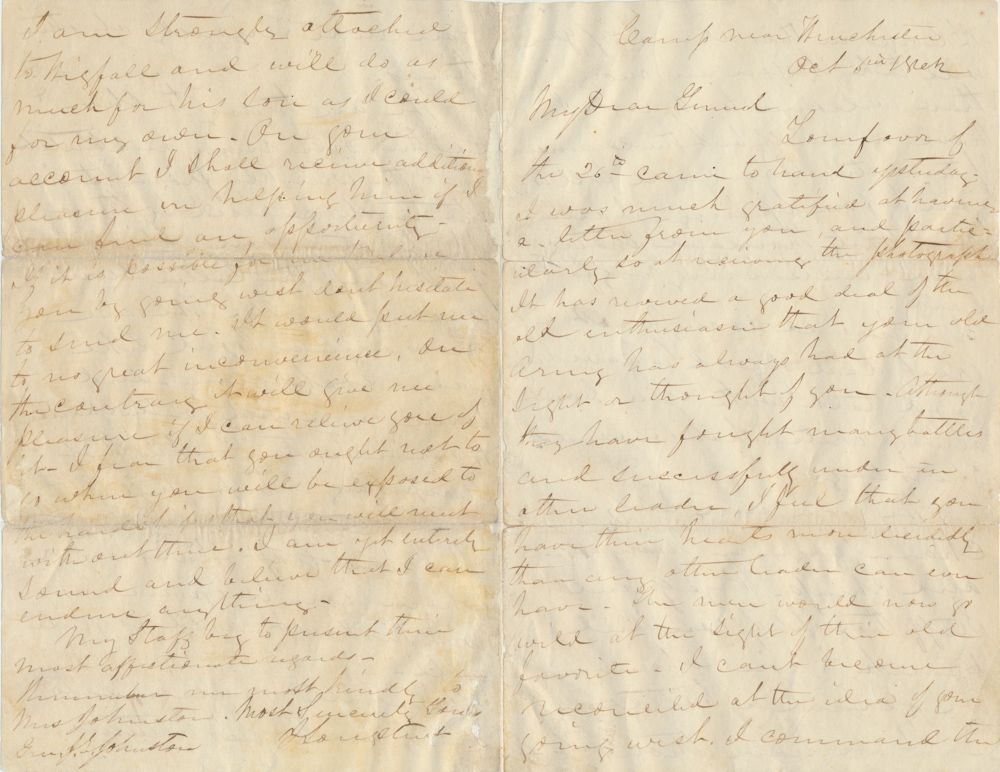 Camp near Winchester
Oct 1862
My Dear General
Your favor of
the 26th came to hand yesterday.
I was much gratified at having
a letter from you, and partic-
ularly so at receiving the photograph
It has revived a good deal of the
old enthusiasm that your old
Army has always had at the
sight or thought of you. Although
they have fought many battles
and successfully under an
other leader, I feel that you
have their hearts more decidedly
than any other leader can ever
have. The men would now go
wild at the sight of their old
favorite. I cant become
reconciled at the idea of your
going west. I command the
I am strongly attached
to Wigfall and will do as
much for his son as I could
for my own. On your
account I shall receive additional
pleasure in helping him if I
can find an opportunity.
If it is possible for me to relieve
you by going west dont hesitate
to send me. It would put me
to no great inconvenience. On
the contrary it will give me
pleasure if I can relieve you of
it. I fear that you ought not to
go where you will be exposed to
the hardships that you will meet
with out there. I am yet entirely
sound and believe that I can
endure anything.
My Staff beg to present their
most affectionate regards.
Remember me most kindly to
Mrs Johnston. Most Sincerely Yours
Genl J E Johnston J Longstreet